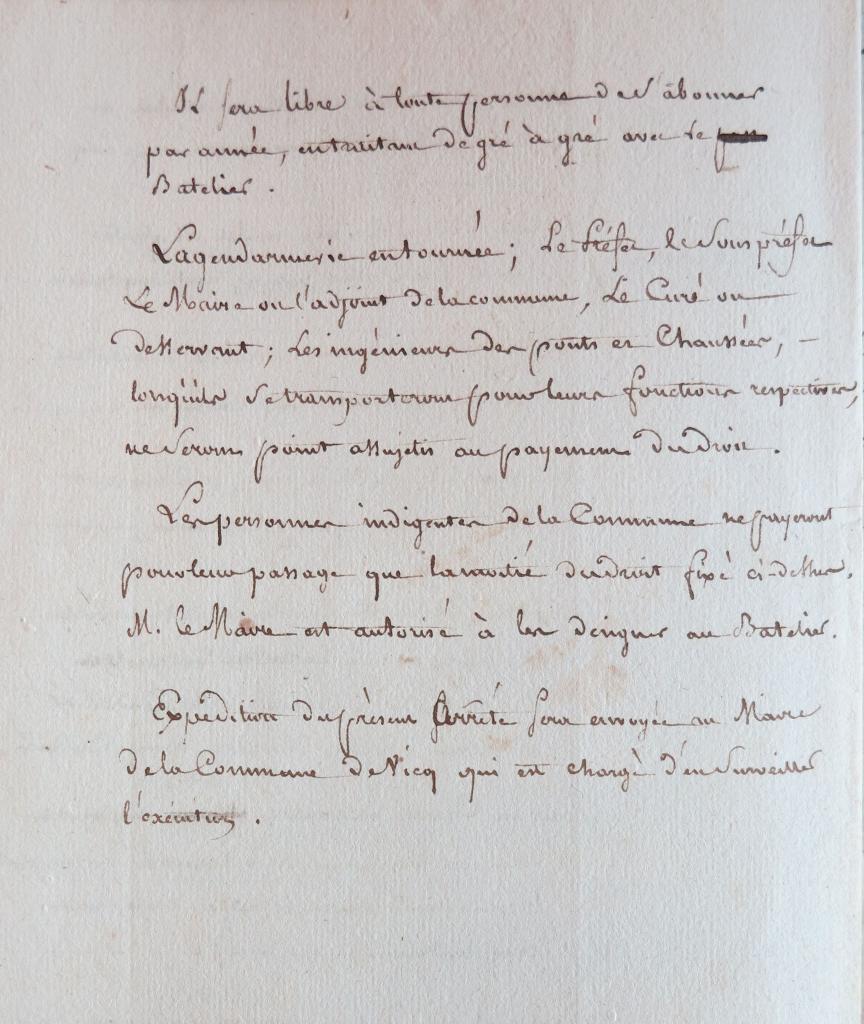 Il sera libre à toute personne de s'abonner
par année, en traitant de gré à gré avec le
Batelier.
La gendarmerie en tournée; Le Préfet, le Sous préfet
Le Maire ou l'adjoint de la commune, Le Curé ou
desservant; Les ingénieurs des ponts et Chaussées, –
lorsqu'ils se transporteront pour leurs fonctions respectives,
ne seront point assujetis au payement du droit.
Les personnes indigentes de la Commune ne payeront
pour leur passage que la moitié du droit fixé ci-dessus.
M. le Maire est autorisé à les désigner au Batelier.
Expédition du présent Arrêté sera envoyée au Maire
de la Commune de Vicq qui est chargé d'en surveiller
l'exécution.